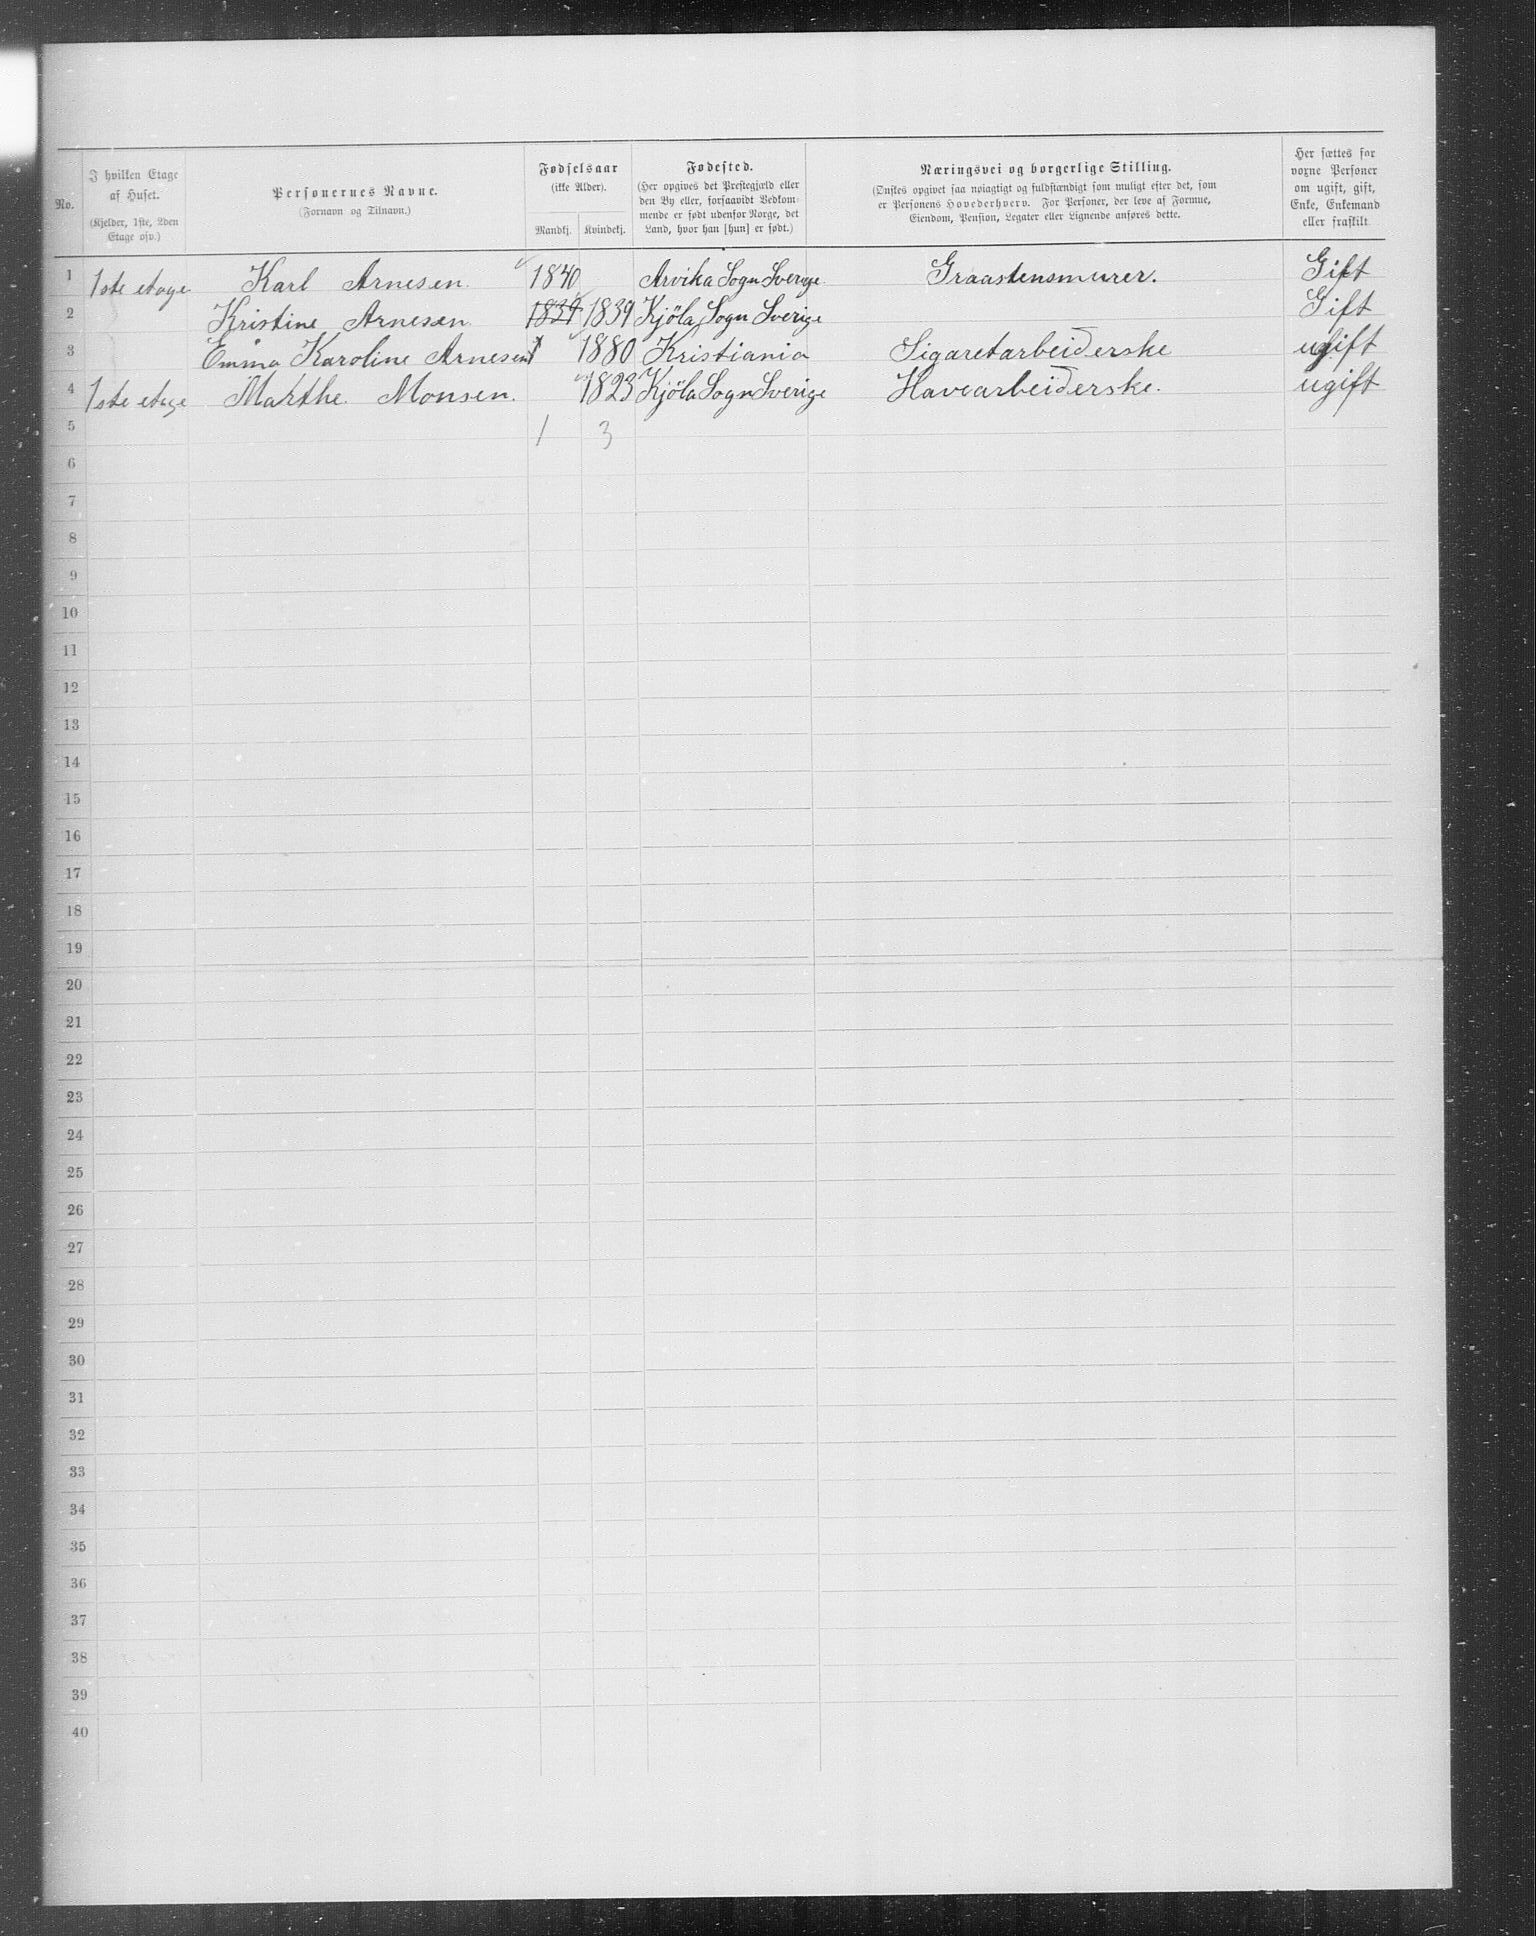 No.
I hvilken Etage
af Huset.
(Kjelder, 1ste, 2den
Etage osv.)
Personernes Navne.
(Fornavn og Tilnavn.)
Fødselsaar
(ikke Alder).
Mandkj. Kvindekj.
Fødested.
(Her opgives det Prestegjæld eller
den By eller, forsaavidt Vedkom-
mende er født udenfor Norge, det
Land, hvor han [hun] er født.)
Næringsvei og borgerlige Stilling.
(Ønskes opgivet saa nøiagtigt og fuldstændigt som muligt efter det, som
er Personens Hovederhverv. For Personer, der leve af Formue,
Eiendom, Pension, Legater eller Lignende anføres dette.
Her sættes for
voxne Personer
om ugift, gift,
Enke, Enkemand
eller fraskilt.
1 1ste etage Karl Arnesen. 1840 Arvika Sogn Sverige Graastensmurer. Gift
2 Kristine Arnesen 1839 1839 Kjöla Sogn Sverige Gift
3 Emma Karoline Arnesen 1880 Kristiania Sigaretarbeiderske ugift
4 1ste etage Marthe Monsen. 1823 Kjöla Sogn Sverige Havearbeiderske. ugift
5 1 3
6
7
8
9
10
11
12
13
14
15
16
17
18
19
20
21
22
23
24
25
26
27
28
29
30
31
32
33
34
35
36
37
38
39
40